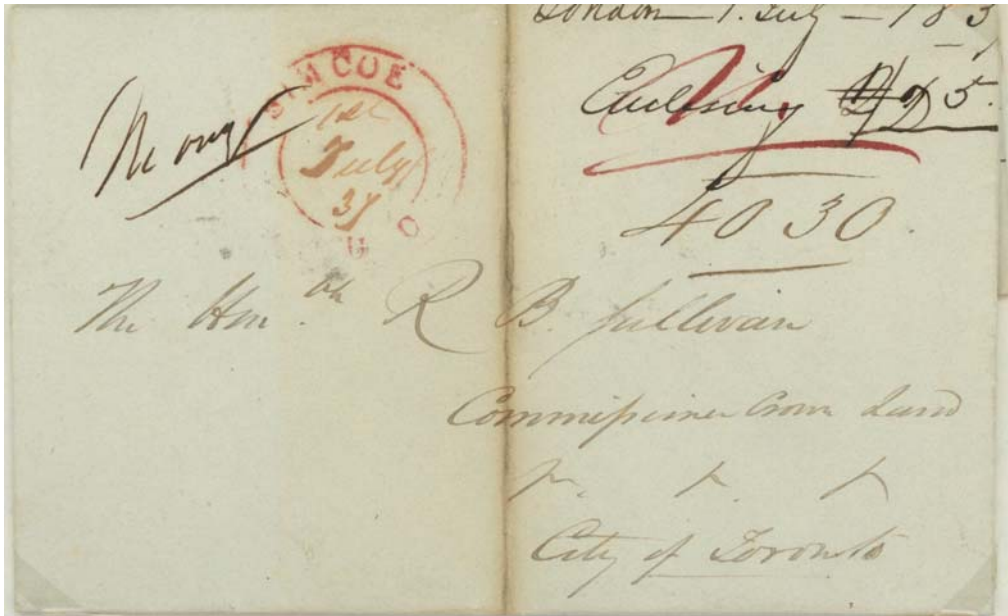 London 1. July - 183
Enclosing
Money
SIMCOE
1st
July
37
U C
40 30
The Hon.ble R B. Sullivan
Commissioner Crown Land
&c. &c. &c
City of Toronto